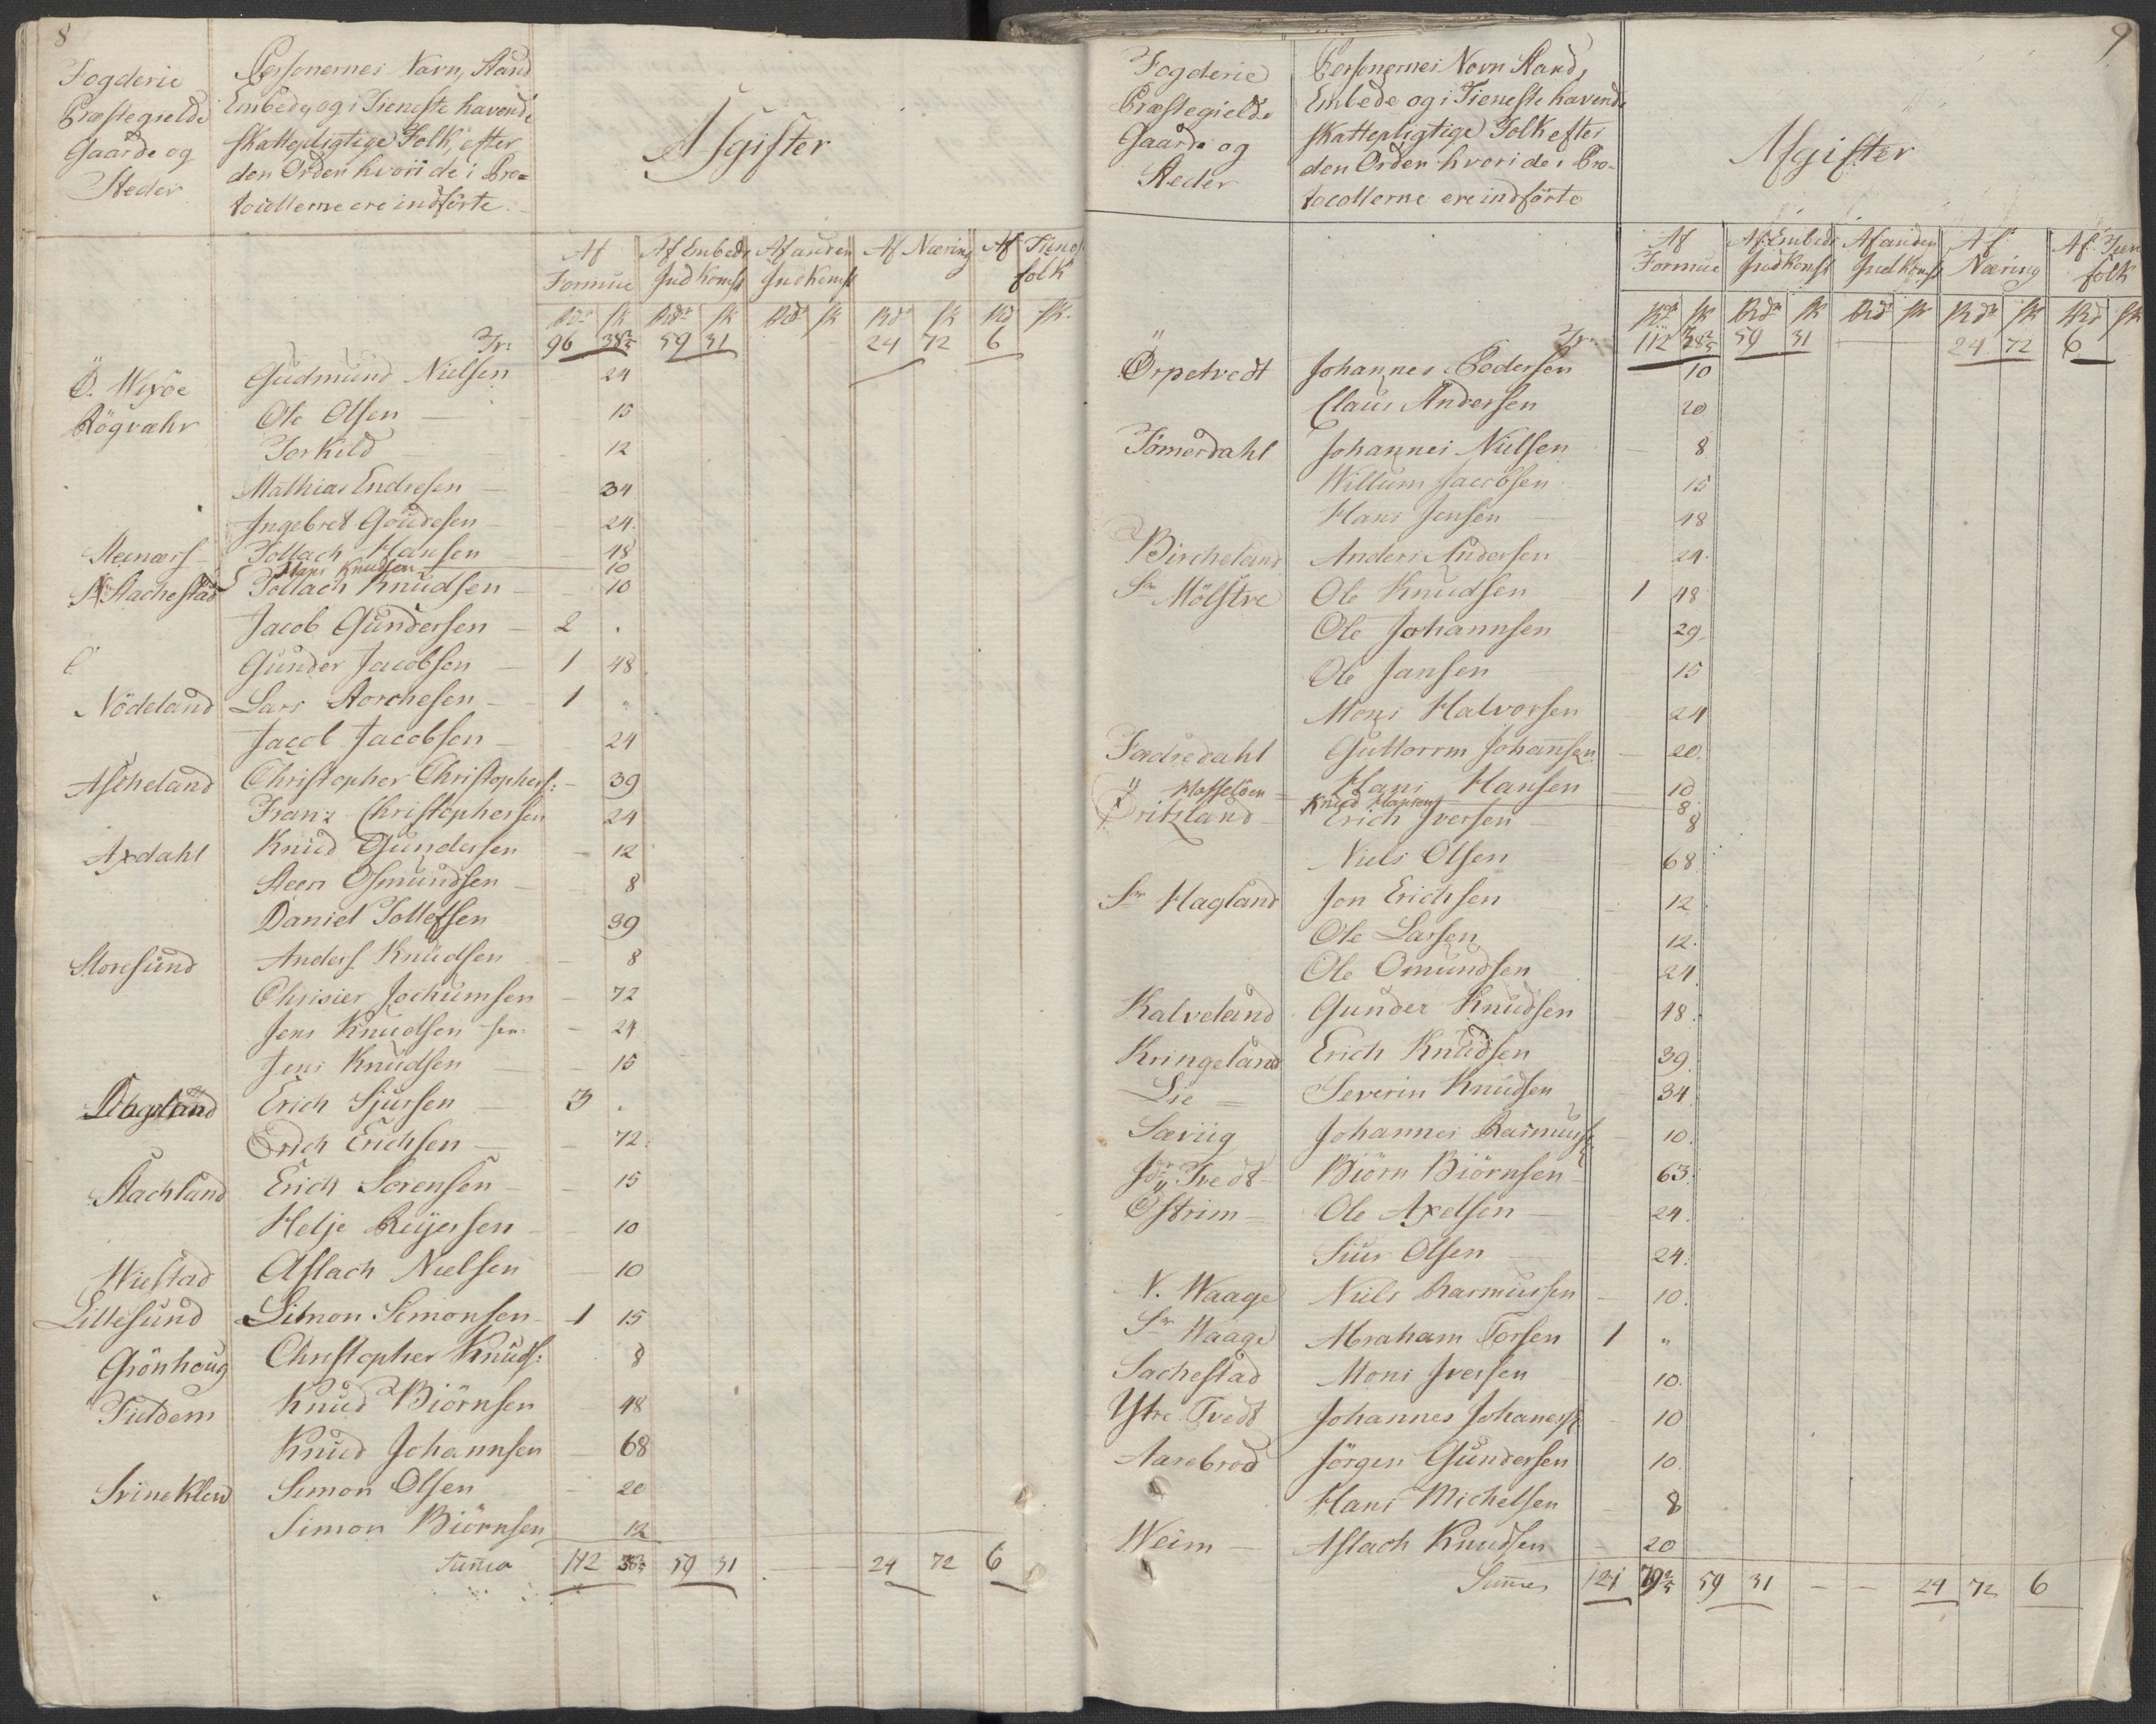 8
Fogderie
Præstegield
Gaarde og
Steder
Personernes Navn, Stand
Embede, og i Tieneste havende
skattepligtige Folk, efter
den Orden hvori de i Pro=
tocollerne ere indførte
Afgifter
Af Formue | Af Embeds Indkomst | Af anden Indkomst | Af Næring | Af Tienestfolk
Rdr sk Rdr sk Rdr sk Rdr sk Rd sk
Tr: 96 38 2/5 59 31 24 72 6
Ö. Wixöe Gudmund Nielsen 24
Rögvæhr Ole Olsen — 15
Torkild — 12
Mathias Endresen — 34
Ingebret Goudesen — 24.
Steenæss Tollach Hansen — 48
Hans Knudsen — 10
Nr Stachestad Tollach Knudsen — 10
Jacob Gundersen — 2 .
Gunder Jacobsen — 1 48.
Nödeland Lars Storchesen — 1 "
Jacob Jacobsen — 24
Ascheland Christopher Christophers: — 39
Franz Christophersen 24
Axdahl Knud Gundersen — 12
Steen Osmundsen — 8
Daniel Tollefsen 39
Storesund Anders Knudsen — 8
Chrisier Jochumsen — 72
Jens Knudsen sen: — 24
Jens Knudsen — 15
Hagland Erich Sjursen — 3 .
Erich Erichsen — 72.
Stachland Erich Sorensen — 15
Helje Reijersen — 10
Wiestad Aslach Nielsen — 10
Lillesund Simon Simonsen — 1 15
Grönhoug Christopher Knuds: 8
Fieldem Knud Biörnsen 48
Knud Johannsen — 68
Svineklew Simon Olsen — 20
Simon Biörnsen 12
Summa 112 38 2/5 59 31 — — 24 72 6
9
Fogderie
Præstegield
Gaarde og
Steder
Personernes Navn Stand,
Embede og i Tieneste havende
skattepligtige Folk efter
den Orden hvori de i Pro-
tocollerne ere indførte
Afgifter
Af Formue | Af Embeds Indkomst | Af anden Indkomst | Af Næring | Af Tien folk
Rdr sk Rdr sk Rdr sk Rdr sk Rd sk
Tr: 112 38 2/5 59 31 — 24 72 6
Örpetvedt Johannes Pedersen 10
Claus Andersen 20
Tömerdahl Johannes Nielsen — 8
Willum Jacobsen 15
Hans Jensen — 48
Bircheland Anders Andersen 24.
Sr Mölstre Ole Knudsen 1 48
Ole Johannsen 29.
Ole Jansen 15
Mons Halvorsen 24
Fædredahl Guttorm Johannsen — 20.
Hasselöen = Hans Hansen — 10
Knud Hansen — 8
Öritzland Erich Iversen — 8
Niels Olsen 68.
Sr Hagland Jon Erichsen 12
Ole Larsen 12.
Ole Omundsen 24.
Kalveland Gunder Knudsen 48.
Kringeland Erich Knudsen 39
Lie = Severin Knudsen 34.
Sæviig Johannes Rasmuss: — 10.
Idr Tvedt Biörn Biörnsen — 63.
Östrim = Ole Axelsen — 24.
Siur Olsen — 24.
N. Waage Niels Rasmussen — 10.
Sr Waage Abraham Torsen 1 "
Sachestad Mons Iversen 10.
Ytre Tvedt Johannes Johaness: — 10
Aarebrod Jörgen Gundersen 10.
Hans Michelsen 8
Weim — Aslach Knudsen 20
Summa 121 79 2/5 59 31 — — 24 72 6